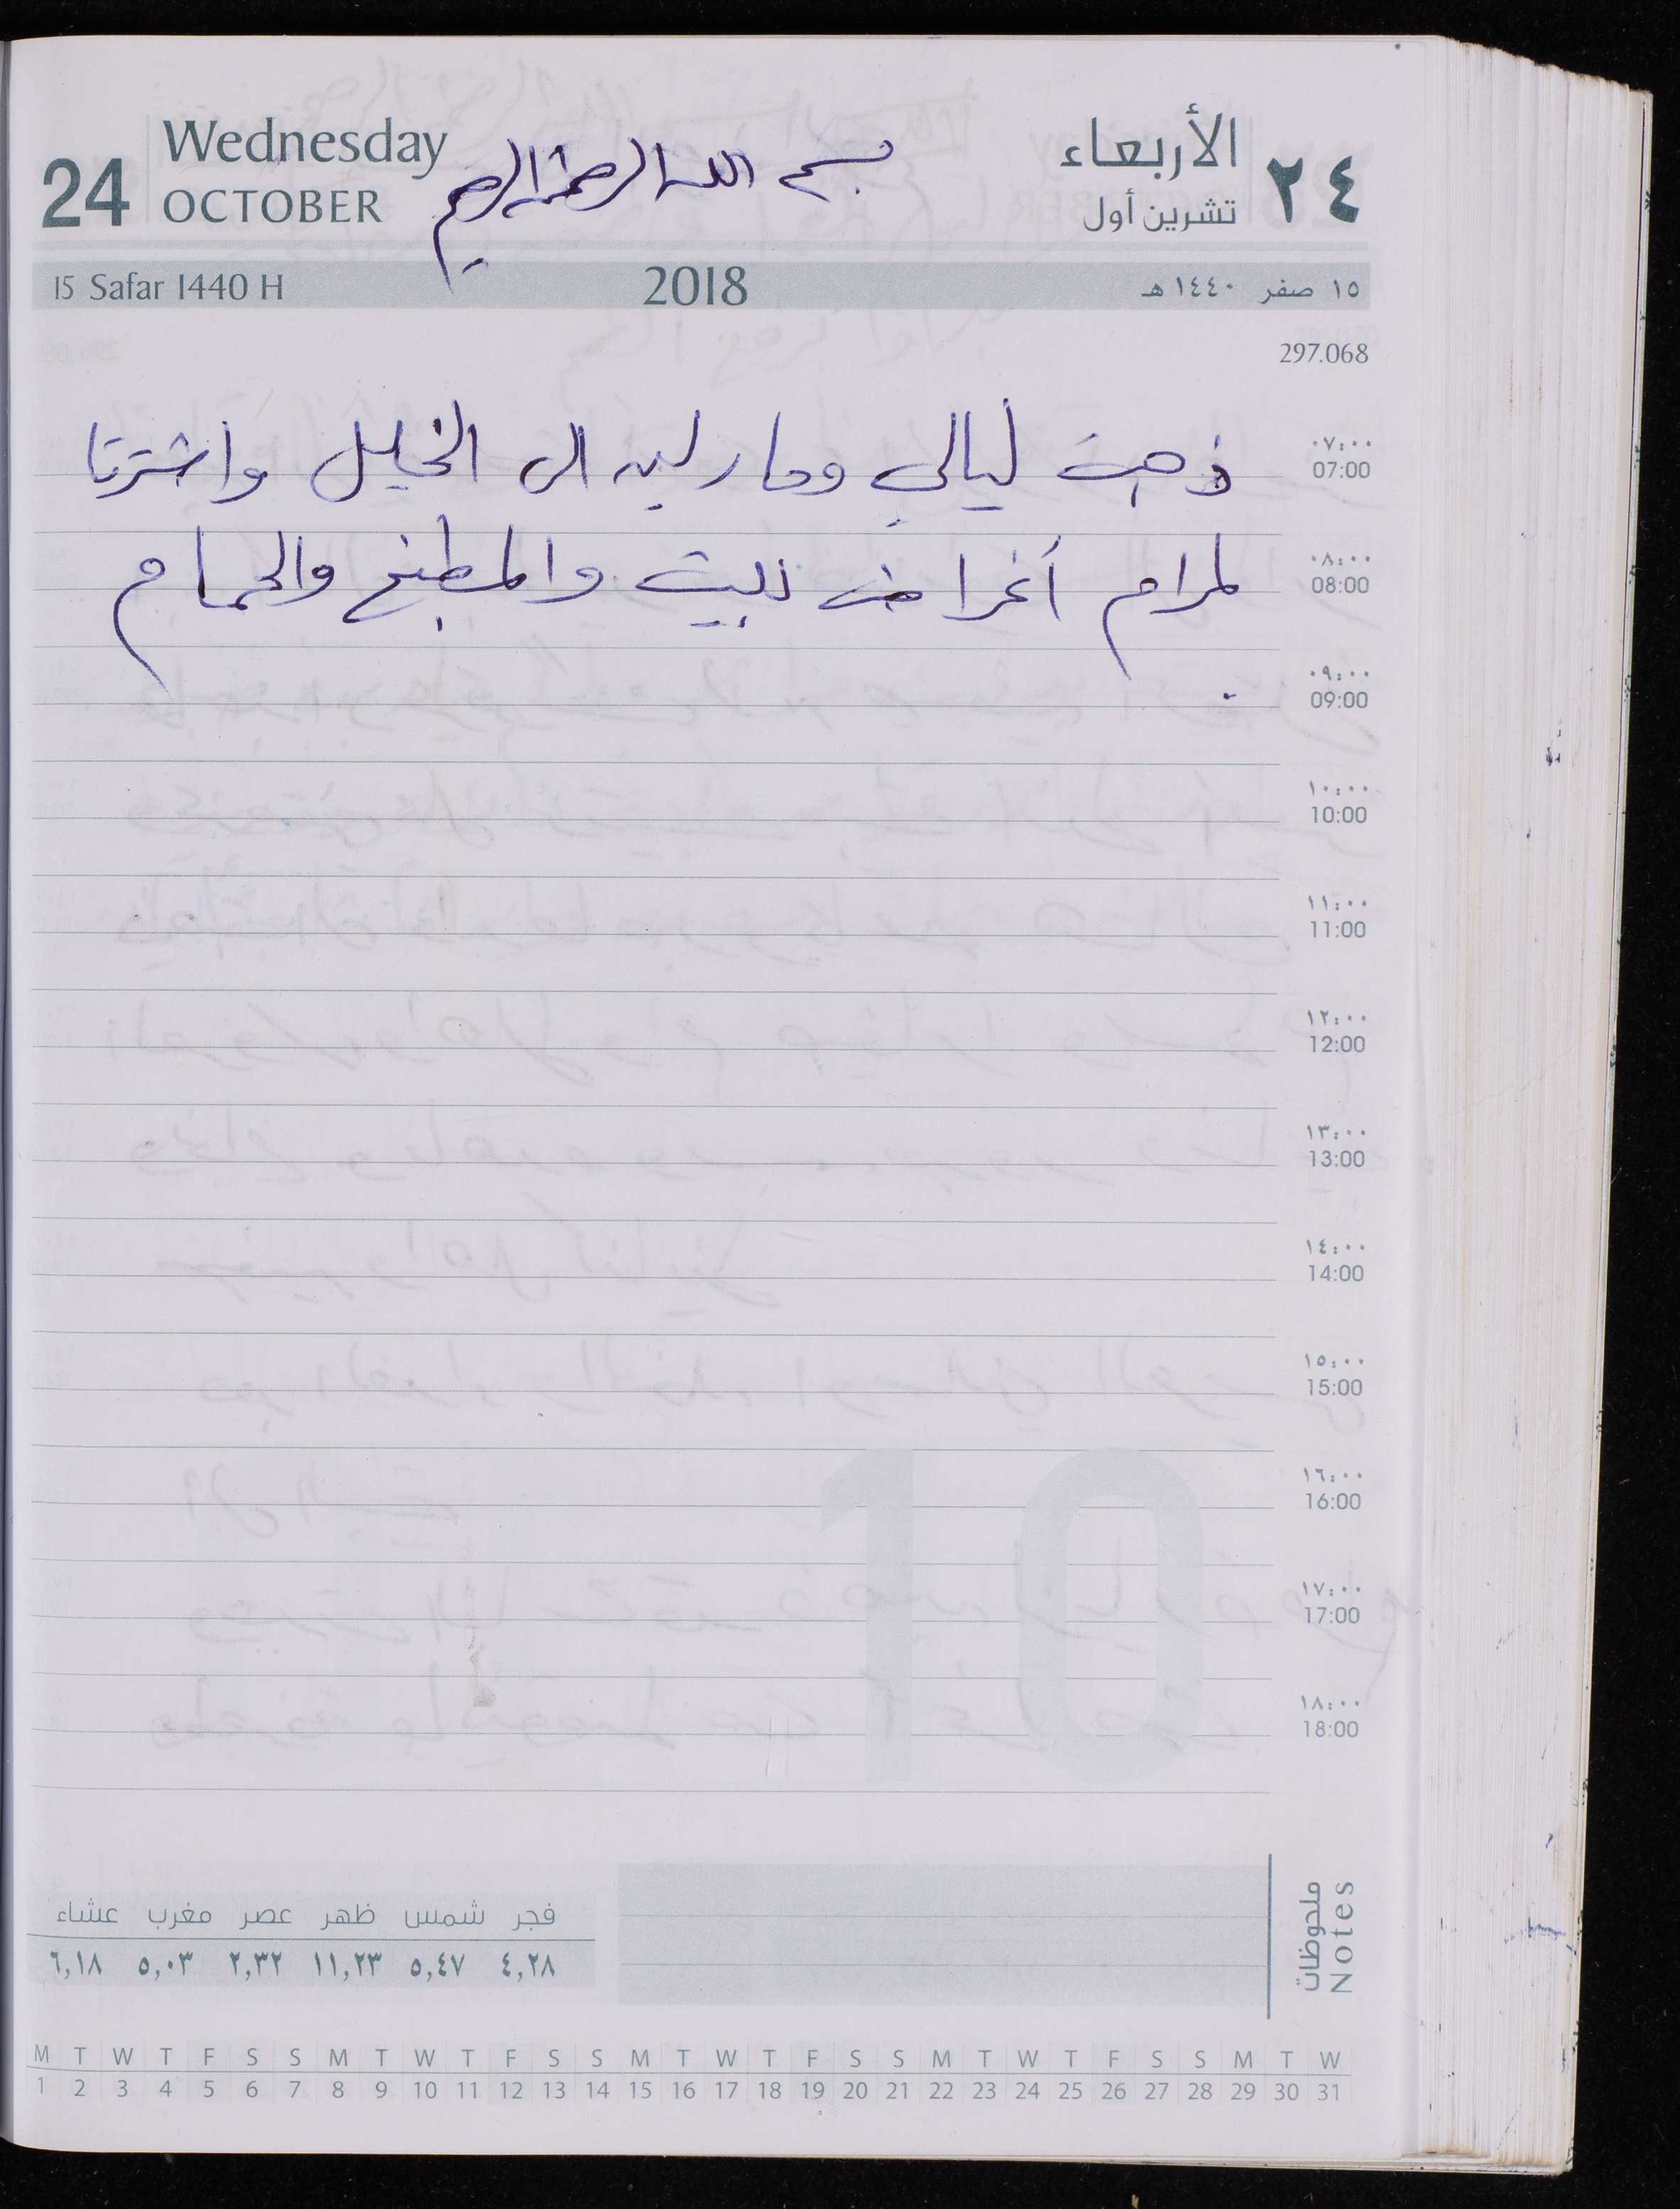 24 Wednesday OCTOBER
بسم الله الرحمن الرحيم
٢٤ الأربعاء تشرين أول
15 Safar 1440 H 2018 ١٥ صفر ١٤٤٠ هـ
297.068
ذهبت ليالي ومارلين الى الخليل واشترتا
لمرام أغراض للبيت والمطبخ والحمام
٠٧:٠٠
07:00
٠٨:٠٠
08:00
٠٩:٠٠
09:00
١٠:٠٠
10:00
١١:٠٠
11:00
١٢:٠٠
12:00
١٣:٠٠
13:00
١٤:٠٠
14:00
١٥:٠٠
15:00
١٦:٠٠
16:00
١٧:٠٠
17:00
١٨:٠٠
18:00
10
ملحوظات
Notes
فجر شمس ظهر عصر مغرب عشاء
٤,٢٨ ٥,٤٧ ١١,٢٣ ٢,٣٢ ٥,٠٣ ٦,١٨
M T W T F S S M T W T F S S M T W T F S S M T W T F S S M T W
1 2 3 4 5 6 7 8 9 10 11 12 13 14 15 16 17 18 19 20 21 22 23 24 25 26 27 28 29 30 31